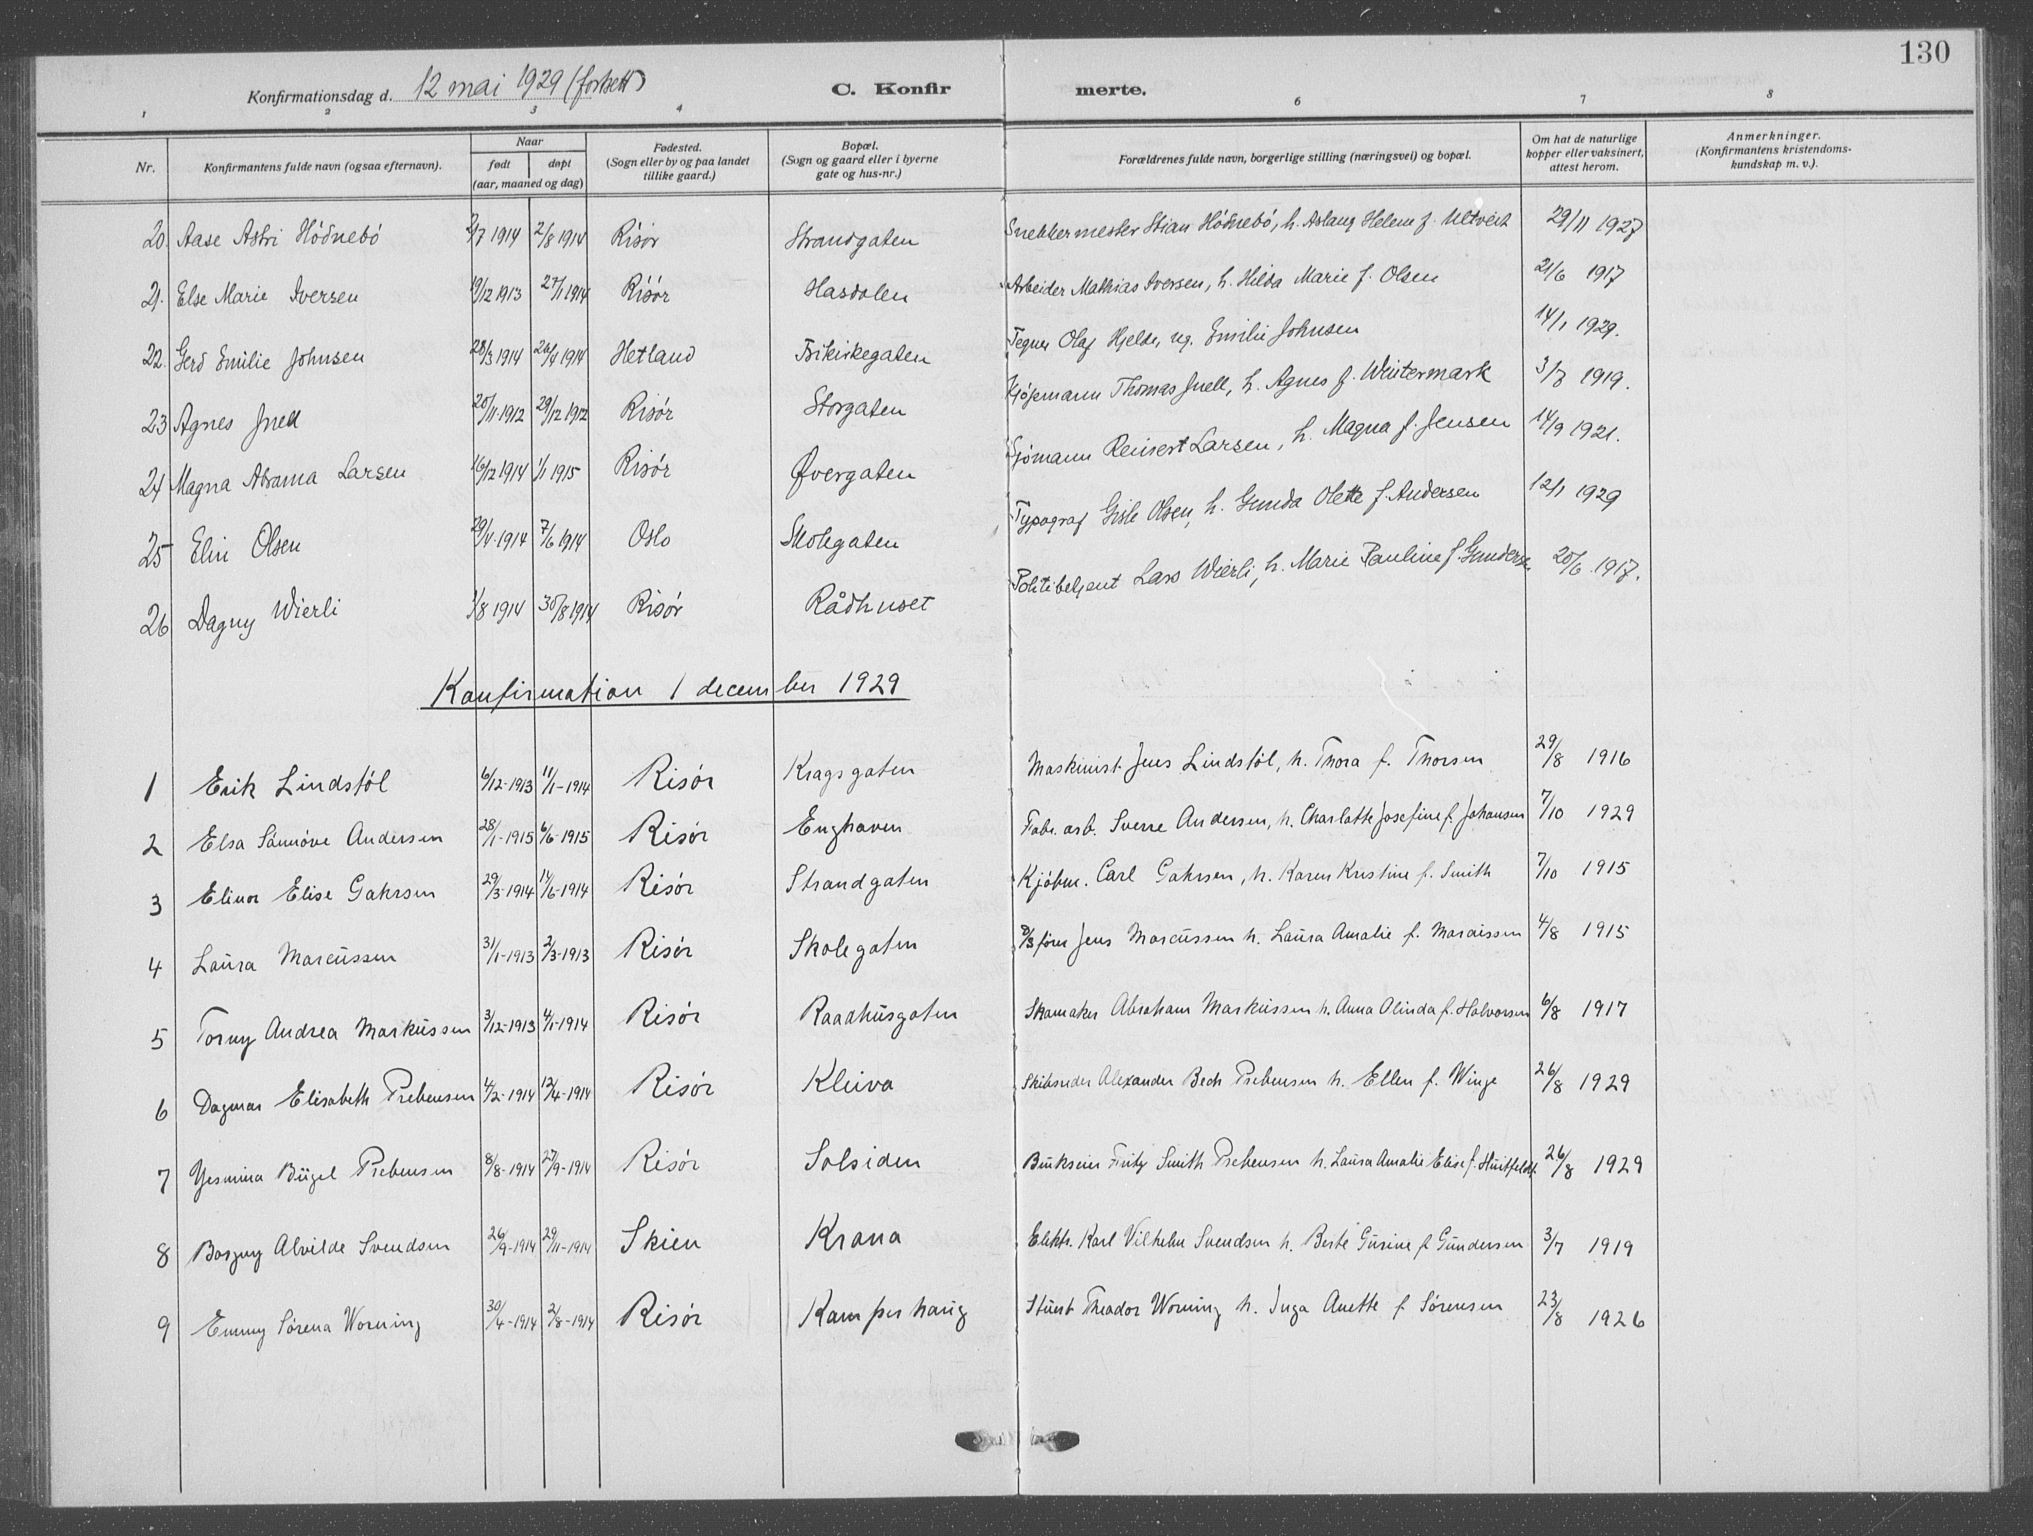 130
Konfirmationsdag d. 12 mai 1929 (fortsett)
C. Konfirmerte.
1 2 3 4 6 7 8
Nr. Konfirmantens fulde navn (ogsaa efternavn). Naar født døpt (aar, maaned og dag) Fødested. (Sogn eller by og paa landet tillike gaard.) Bopæl. (Sogn og gaard eller i byerne gate og hus-nr.) Forældrenes fulde navn, borgerlige stilling (næringsvei) og bopæl. Om hat de naturlige kopper eller vaksinert, attest herom. Anmerkninger. (Konfirmantens kristendoms-kundskap m. v.).
20. Aase Astri Hödnebö 2/7 1914 2/8 1914 Risör Strandgaten Snekkermester Stian Hödnebö, h. Aslaug Helene f. Ultveit 29/11 1927
21. Else Marie Iversen 19/12 1913 27/1 1914 Risör Hasdalen Arbeider Mathias Iversen, h. Hilda Marie f. Olsen 21/6 1917
22. Gerd Emilie Johnsen 28/3 1914 26/4 1914 Hetland Frikirkegaten Tegner Olaf Hjelde, ug. Emilie Johnsen 14/1 1929.
23 Agnes Juell 20/11 1912 29/12 1912 Risör Storgaten Kjøpmann Thomas Juell, h. Agnes f. Wintermark 3/7 1919.
24 Magna Abrama Larsen 16/12 1914 1/1 1915 Risör Øvergaten Sjömann Reinert Larsen, h. Magna f. Jensen 14/9 1921.
25 Elin Olsen 29/4 1914 7/6 1914 Oslo Skolegaten Typograf Gisle Olsen, h. Gunda Olette f. Andersen 12/1 1929
26 Dagny Wierli 1/8 1914 30/8 1914 Risör Rådhuset Politibetjent Lars Wierli, h. Marie Pauline f. Gundersen 20/6 1917.
Konfirmation 1 december 1929
1 Erik Lindstöl 6/12-1913 11/1-1914 Risör Kragsgaten Maskinist Jens Lindstöl, h. Thora f. Thorsen 29/8 1916
2 Elsa Sünnöve Andersen 28/1-1915 6/6-1915 Risör Enghaven Fabr. arb. Sverre Andersen, h. Charlotte Josefine f. Johansen 7/10 1929
3 Elinor Elise Gahrsen 29/3-1914 14/6-1914 Risör Strandgaten Kjöbm. Carl Gahrsen, h. Karen Kristine f. Smith 7/10 1915
4 Laura Marcussen 31/1-1913 2/3-1913 Risör Skolegaten D/S förer Jens Marcussen h. Laura Amalie f. 4/8 1915
5 Torny Andrea Markussen 3/12-1913 4/1-1914 Risör Raadhusgaten Skomaker Abraham Markussen h. Anna Olinda f. Halvorsen 6/8 1917
6 Dagmar Elisabeth Prebensen 4/2-1914 12/4-1914 Risör Kleiva Skibsreder Alexander Bech Prebensen h. Ellen f. Winge 26/8 1929
7 Yesmina Bügel Prebensen 8/8-1914 27/9-1914 Risör Solsiden Brukseier Fritz Smith Prebensen h. Laura Amalie Elise f. Huitfeldt 26/8 1929
8 Borgny Alvilde Svendsen 26/9-1914 29/11-1914 Skien Krana Elektr. Karl Vilhelm Svendsen h. Berte Gurine f. Gundersen 3/7 1919
9 Emmy Sörena Worning 30/4-1914 2/8-1914 Risör Kamperhaug Stuert Theodor Worning h. Inga Anette f. Sörensen 23/8 1926